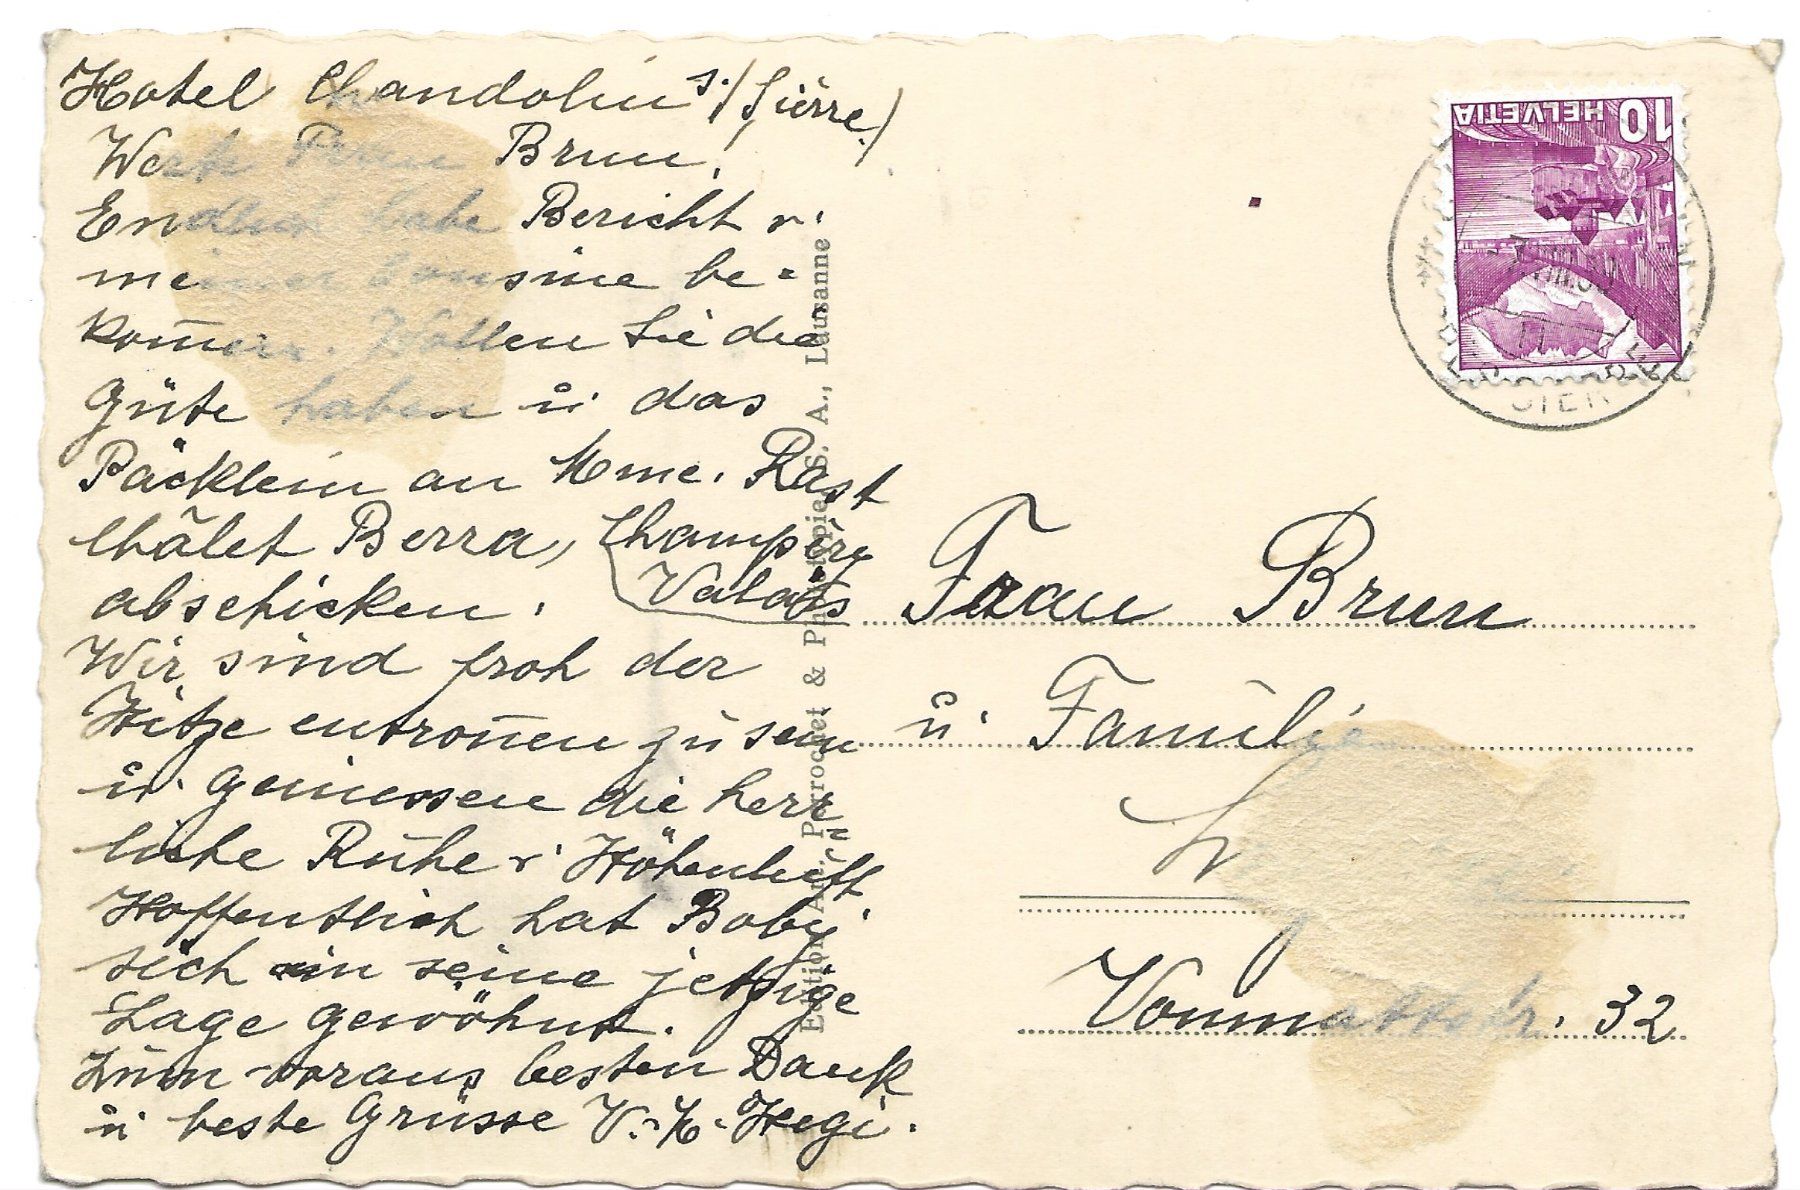 Hotel Chandolin s./Sierre)
Werte Frau Brun!
Endlich habe Bericht v.
meiner Cousine be-
kom̄en. Wollen Sie die
Güte haben u. das
Päcklein an Mme. Rast
Châlet Berra, Champéry
Valais
abschicken.
Wir sind froh der
Hitze entron̄en zu sein
u. geniessen die herr
liche Ruhe u. Höhenluft
Hoffentlich hat Boby
sich in seine jetzige
Lage gewöhnt.
Zum voraus besten Dank
u. beste Grüsse V. Hegi.
Edition Art. Perrochet & Phototypie S. A., Lausanne
10 HELVETIA
Frau Brun
u. Familie
Vonmattstr. 32